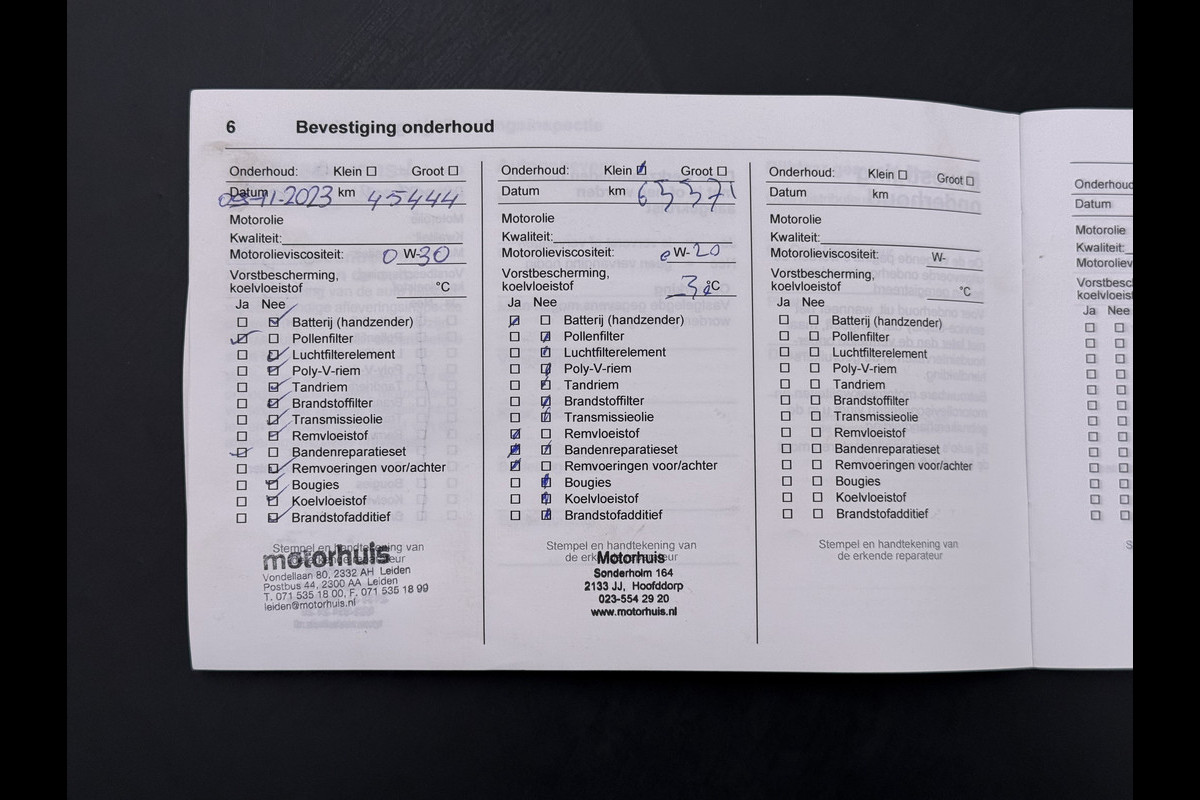 6 Bevestiging onderhoud
Onderhoud: Klein Groot
Datum -11-2023 km 45444
Motorolie
Kwaliteit:
Motorolieviscositeit: 0 W-30
Vorstbescherming,
koelvloeistof °C
Ja Nee
Batterij (handzender)
Pollenfilter
Luchtfilterelement
Poly-V-riem
Tandriem
Brandstoffilter
Transmissieolie
Remvloeistof
Bandenreparatieset
Remvoeringen voor/achter
Bougies
Koelvloeistof
Brandstofadditief
Stempel en handtekening van
motorhuis
Vondellaan 80, 2332 AH Leiden
Postbus 44, 2300 AA Leiden
T. 071 535 18 00, F. 071 535 18 99
leiden@motorhuis.nl
Onderhoud: Klein Groot
Datum km
Motorolie
Kwaliteit:
Motorolieviscositeit: W-20
Vorstbescherming,
koelvloeistof °C
Ja Nee
Batterij (handzender)
Pollenfilter
Luchtfilterelement
Poly-V-riem
Tandriem
Brandstoffilter
Transmissieolie
Remvloeistof
Bandenreparatieset
Remvoeringen voor/achter
Bougies
Koelvloeistof
Brandstofadditief
Stempel en handtekening van
de
Motorhuis
Sonderholm 164
2133 JJ, Hoofddorp
023-554 29 20
www.motorhuis.nl
Onderhoud: Klein Groot
Datum km
Motorolie
Kwaliteit:
Motorolieviscositeit: W-
Vorstbescherming,
koelvloeistof °C
Ja Nee
Batterij (handzender)
Pollenfilter
Luchtfilterelement
Poly-V-riem
Tandriem
Brandstoffilter
Transmissieolie
Remvloeistof
Bandenreparatieset
Remvoeringen voor/achter
Bougies
Koelvloeistof
Brandstofadditief
Stempel en handtekening van
de erkende reparateur
Onderhoud
Datum
Motorolie
Kwaliteit:
Motoroliev
Vorstbesc
koelvloeist
Ja Nee